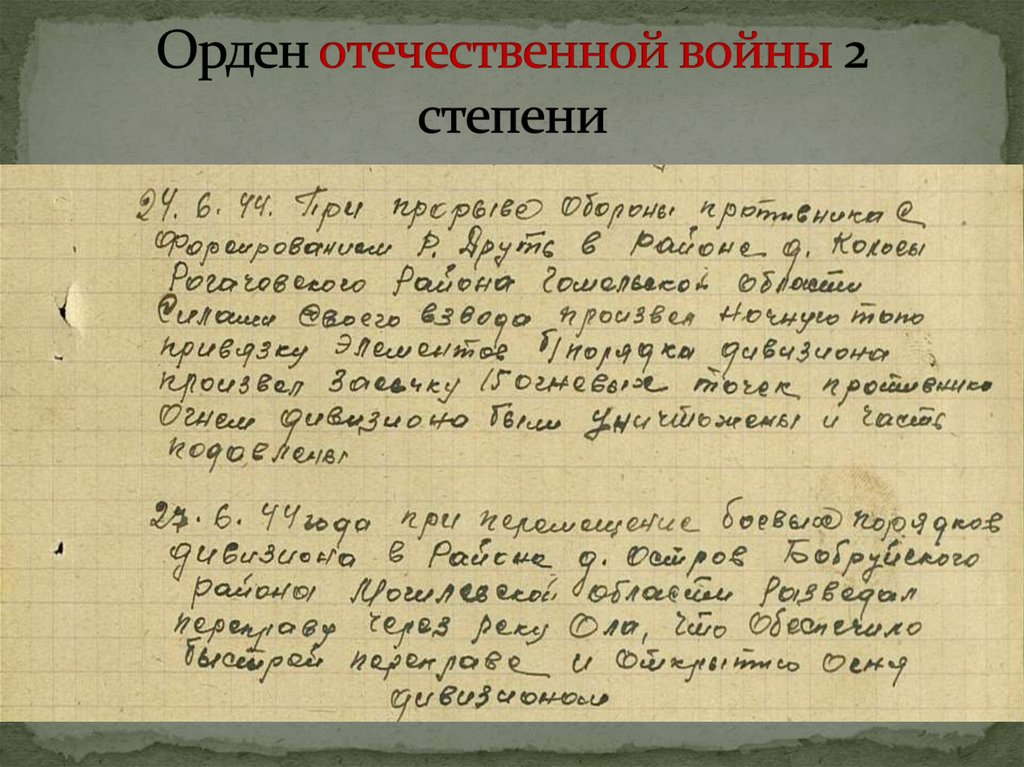 Орден отечественной войны 2
степени
24. 6. 44. При прорыве обороны противника с
Форсированием Р. Друть в районе д. Колосы
Рогачовского Района Гомельской области
Силами своего взвода произвел ночную топо
привязку элементов б/порядка дивизиона
произвел засечку 15 огневых точек противника
Огнем дивизиона были уничтожены и часть
подавлены
27. 6. 44 года при перемещение боевых порядков
дивизиона в Районе д. Остров Бобруйского
района Могилевской области Разведал
переправу через реку Ола, что обеспечило
быстрой переправе и открытию огня
дивизионом